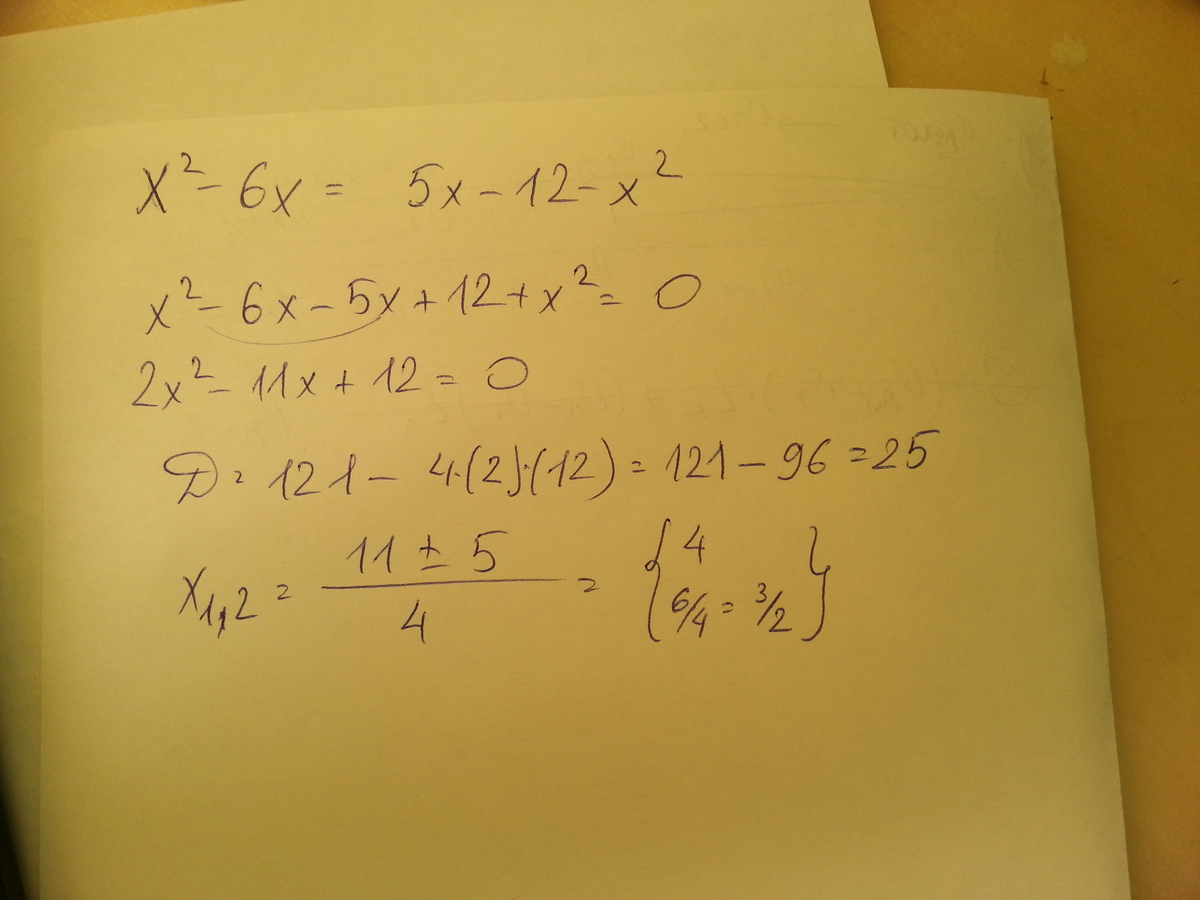 x² - 6x = 5x - 12 - x²
x² - 6x - 5x + 12 + x² = 0
2x² - 11x + 12 = 0
D = 121 - 4·(2)·(12) = 121 - 96 = 25
x₁,₂ = (11 ± 5)/4 = {4; 6/4 = 3/2}